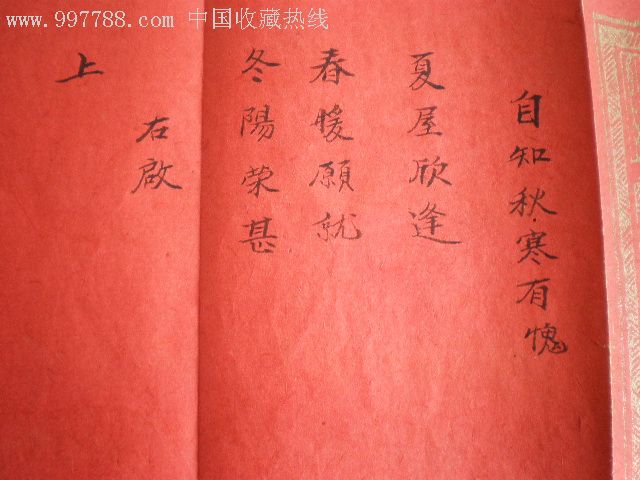 www.997788.com 中国收藏热线
自知秋寒有愧
夏屋欣逢
春暖願就
冬陽荣甚
右啟
上